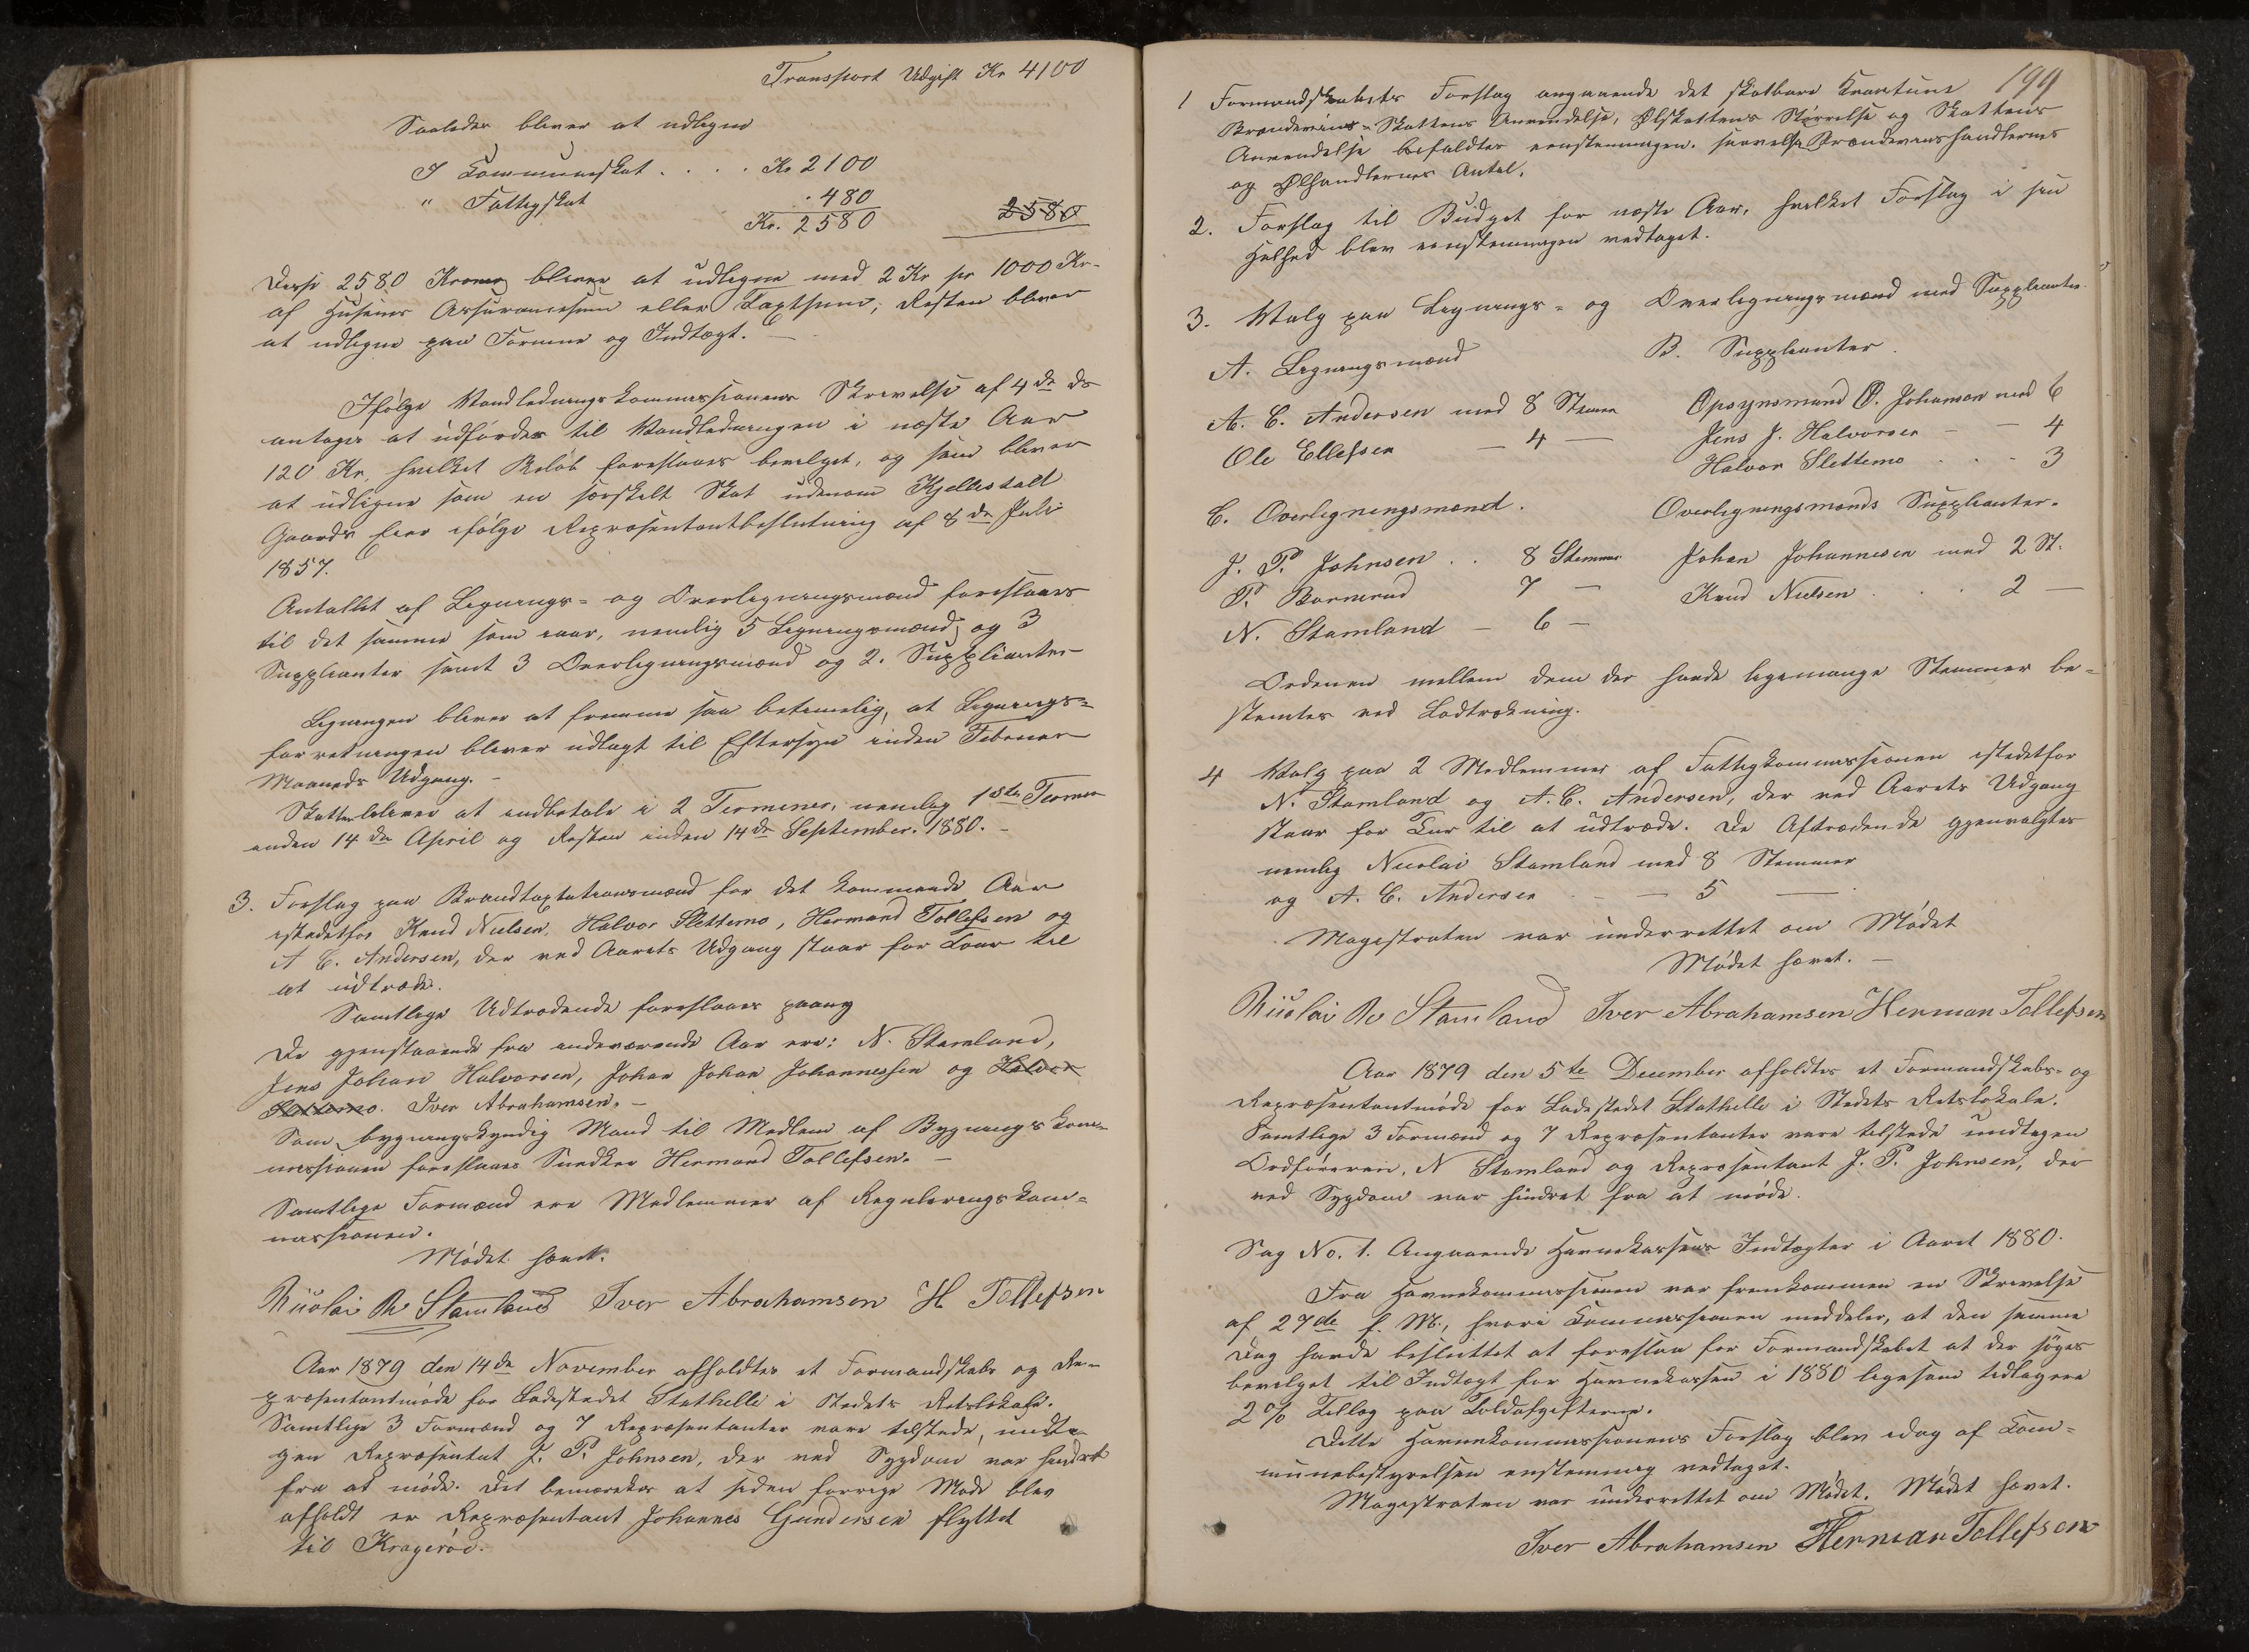 Transport Udgift Kr 4100
Saaledes bliver at udligne
I Communeskat . . . . Kr 2100
" Fattigskat . 480
Kr. 2580 2580
Disse 2580 Kroner bliver at udligne med 2 Kr pr 1000 Kr
af Husenes Assurancesum eller Taxtsum; Resten bliver
at udligne paa Formue og Indtægt. —
Ifølge Vandledningskommissionens Skrivelse af 4de ds
antages at udfordres til Vandledningen i næste Aar
120 Kr, hvilket Beløb foreslaaes bevilget, og som bliver
at udligne som en særskilt Skat udenom Kjellestad
Gaards Eier ifølge Repræsentantbeslutning af 8de Juli
1857.
Antallet af Lignings- og Overligningsmænd foreslaaes
til det samme som iaar, nemlig 5 Ligningsmænd og 3
Suppleanter samt 3 Overligningsmænd og 2. Suppleanter
Ligningen bliver at fremme saa betimelig, at Lignings-
forretningen bliver udlagt til Eftersyn inden Februar
Maaneds Udgang. -
Skatten bliver at indbetale i 2 Terminer, nemlig 1ste Termin
inden 14de April og Resten inden 14de September 1880. -
3. Forslag paa Brandtaxtationsmænd for det kommende Aar
istedetfor Knud Nielsen, Halvor Slettemo, Hermand Tollefsen og
A C. Andersen, der ved Aarets Udgang staar for Tour til
at udtræde.
Samtlige Udtrædende foreslaaes paany
De gjenstaaende fra indeværende Aar ere: N. Stamland,
Jens Johan Halvorsen, Johan Johan Johannessen og Halvor
Slettemo. Iver Abrahamsen. -
Som bygningskyndig Mand til Medlem af Bygningskom-
missionen foreslaaes Snedker Hermand Tollefsen. -
Samtlige Formænd ere Medlemmer af Reguleringskom-
missionen.
Mødet hævet.
Nicolai Stamland Iver Abrahamsen H Tollefsen
Aar 1879 den 14de November afholdtes et Formandskabs og Re-
præsentantmøde for Ladestedet Stathelle i Stedets Retslokale.
Samtlige 3 Formænd og 7 Repræsentanter vare tilstede, undta-
gen Repræsentat J. P. Johnsen, der ved Sygdom var hindret
fra at møde. Det bemærkes at siden forrige Møde blev
afholdt er Repræsentant Johannes Gundersen flyttet
til Kragerøe.
199
1 Formandskabets Forslag angaaende det skatbare Kvantum
Brændevins-Skattens Anvendelse, Ølskattens Størrelse og Skattens
Anvendelse bifaldtes eenstemmigen. Brændevinshandlernes
og Ølhandlernes Antal.
2. Forslag til Budget for næste Aar, hvilket Forslag i sin
Helhed blev eenstemmigen vedtaget.
3. Valg paa Lignings- og Overligningsmænd med Suppleanter.
A. Ligningsmænd B. Suppleanter.
A. C. Andersen med 8 Stemmer Opsynsmand O. Johansen med 6
Ole Ellefsen — 4 — Jens J. Halvorsen — — 4
Halvor Slettemo . . - 3
C. Overligningsmænd. Overligningsmænds Suppleanter.
J. P. Johnsen . . 8 Stemmer Johan Johannesen med 2 St.
P. Barmrud 7 — Knud Nielsen . . . 2 —
N. Stamland — 6 —
Ordenen mellem dem der havde ligemange Stemmer be-
stemtes ved Lodtrækning.
4 Valg paa 2 Medlemmer af Fattigkommissionen istedetfor
N. Stamland og A. C. Andersen, der ved Aarets Udgang
staar for Tur til at udtræde. De Aftrædende gjenvalgtes
nemlig Nicolai Stamland med 8 Stemmer
og A. C. Andersen - — 5 —
Magistraten var underrettet om Mødet
Mødet hævet. —
Nicolai Stamland Iver Abrahamsen Herman Tollefsen
Aar 1879 den 5te December afholdtes et Formandskabs- og
Repræsentantmøde for Ladestedet Stathelle i Stedets Retslokale.
Samtlige 3 Formænd og 7 Repræsentanter vare tilstede undtagen
Ordføreren, N Stamland og Repræsentant J. P. Johnsen, der
ved Sygdom var hindret fra at møde.
Sag No. 1. Angaaende Havnekassens Indtægter i Aaret 1880.
Fra Havnekommissionen var fremkommen en Skrivelse
af 27de f. M., hvori Commissionen meddeler, at den samme
Dag havde besluttet at foreslaa for Formandskabet at der søges
bevilget til Indtægt for Havnekassen i 1880 ligesom tidligere
2 % Tillæg paa Toldafgifterne.
Dette Havnekommissionens Forslag blev idag af Com-
munebestyrelsen enstemmig vedtaget.
Magistraten var underrettet om Mødet. Mødet hævet.
Iver Abrahamsen Herman Tollefsen